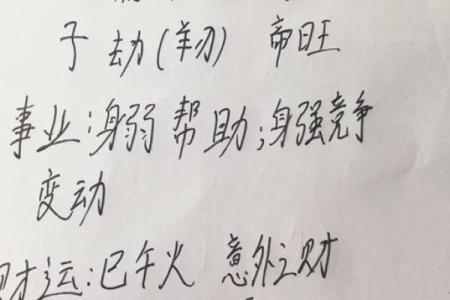 子 劫(羊刃) 帝旺
事业:身弱 帮助;身强竞争
变动
财运:巳午火 意外之财